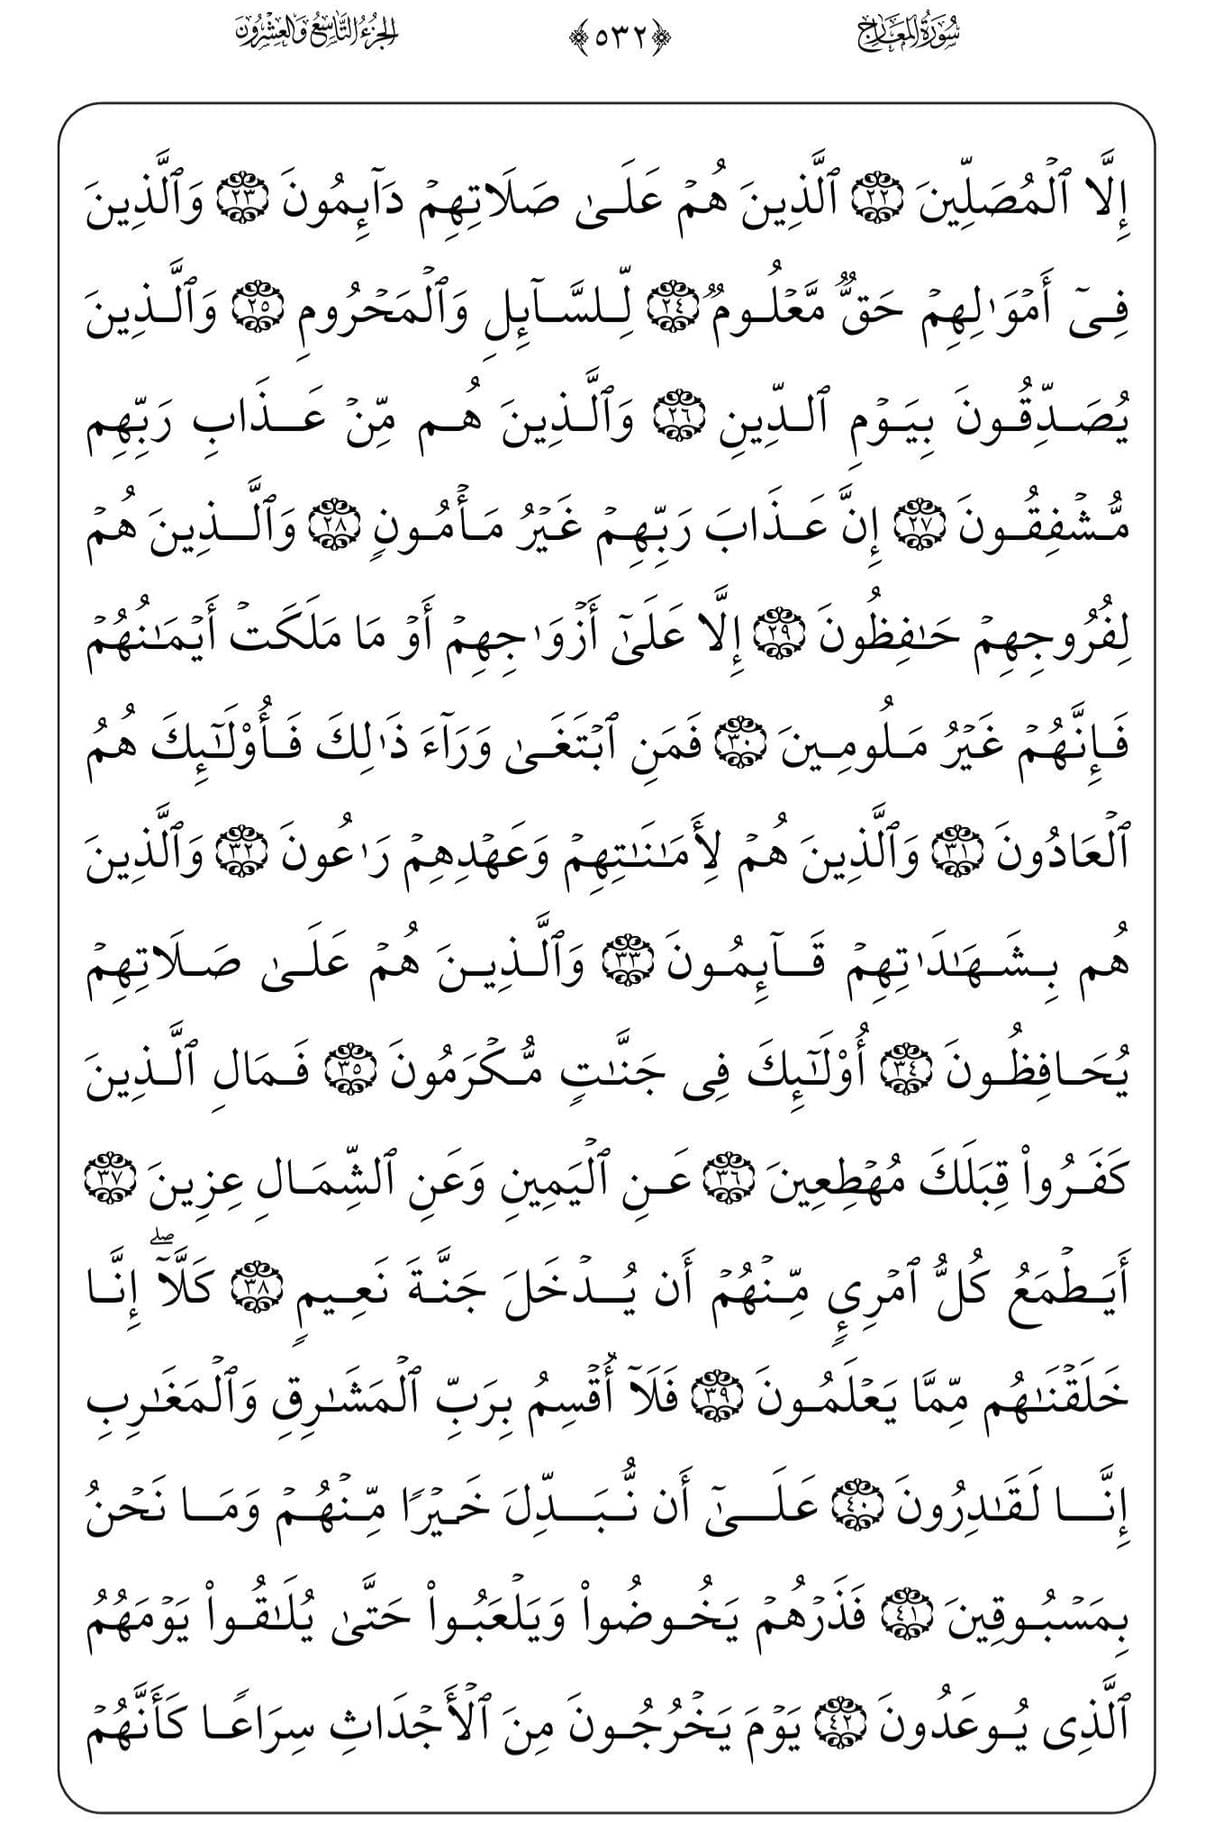 سُورَةُ المَعَارِجِ ﴿٥٣٢﴾ الجُزْءُ التَّاسِعُ وَالعِشْرُونَ
إِلَّا ٱلۡمُصَلِّينَ ٢٢ ٱلَّذِينَ هُمۡ عَلَىٰ صَلَاتِهِمۡ دَآئِمُونَ ٢٣ وَٱلَّذِينَ
فِىٓ أَمۡوَٰلِهِمۡ حَقٌّ مَّعۡلُومٌ ٢٤ لِّلسَّآئِلِ وَٱلۡمَحۡرُومِ ٢٥ وَٱلَّذِينَ
يُصَدِّقُونَ بِيَوۡمِ ٱلدِّينِ ٢٦ وَٱلَّذِينَ هُم مِّنۡ عَذَابِ رَبِّهِم
مُّشۡفِقُونَ ٢٧ إِنَّ عَذَابَ رَبِّهِمۡ غَيۡرُ مَأۡمُونٍ ٢٨ وَٱلَّذِينَ هُمۡ
لِفُرُوجِهِمۡ حَٰفِظُونَ ٢٩ إِلَّا عَلَىٰٓ أَزۡوَٰجِهِمۡ أَوۡ مَا مَلَكَتۡ أَيۡمَٰنُهُمۡ
فَإِنَّهُمۡ غَيۡرُ مَلُومِينَ ٣٠ فَمَنِ ٱبۡتَغَىٰ وَرَآءَ ذَٰلِكَ فَأُوْلَٰٓئِكَ هُمُ
ٱلۡعَادُونَ ٣١ وَٱلَّذِينَ هُمۡ لِأَمَٰنَٰتِهِمۡ وَعَهۡدِهِمۡ رَٰعُونَ ٣٢ وَٱلَّذِينَ
هُم بِشَهَٰدَٰتِهِمۡ قَآئِمُونَ ٣٣ وَٱلَّذِينَ هُمۡ عَلَىٰ صَلَاتِهِمۡ
يُحَافِظُونَ ٣٤ أُوْلَٰٓئِكَ فِى جَنَّٰتٍ مُّكۡرَمُونَ ٣٥ فَمَالِ ٱلَّذِينَ
كَفَرُواْ قِبَلَكَ مُهۡطِعِينَ ٣٦ عَنِ ٱلۡيَمِينِ وَعَنِ ٱلشِّمَالِ عِزِينَ ٣٧
أَيَطۡمَعُ كُلُّ ٱمۡرِيٕٖ مِّنۡهُمۡ أَن يُدۡخَلَ جَنَّةَ نَعِيمٍ ٣٨ كَلَّآۖ إِنَّا
خَلَقۡنَٰهُم مِّمَّا يَعۡلَمُونَ ٣٩ فَلَآ أُقۡسِمُ بِرَبِّ ٱلۡمَشَٰرِقِ وَٱلۡمَغَٰرِبِ
إِنَّا لَقَٰدِرُونَ ٤٠ عَلَىٰٓ أَن نُّبَدِّلَ خَيۡرًا مِّنۡهُمۡ وَمَا نَحۡنُ
بِمَسۡبُوقِينَ ٤١ فَذَرۡهُمۡ يَخُوضُواْ وَيَلۡعَبُواْ حَتَّىٰ يُلَٰقُواْ يَوۡمَهُمُ
ٱلَّذِى يُوعَدُونَ ٤٢ يَوۡمَ يَخۡرُجُونَ مِنَ ٱلۡأَجۡدَاثِ سِرَاعًا كَأَنَّهُمۡ